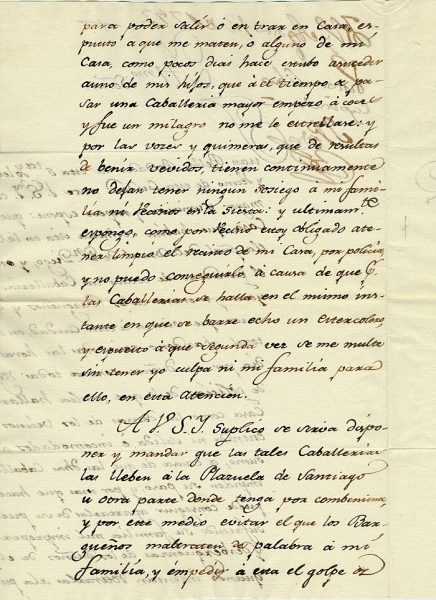 para poder salir ó entrar en Casa, es
puesto a que me maten, o alguno de mi
Casa, como pocos dias hace estubo a suceder
a uno de mis hijos, que a el tiempo a pa
sar una Caballeria mayor empezó a coces
y fue un milagro no me le estrellase: y
por las vozes y quimeras, que de resultas
de benir vevidos, tienen continuamente
no dejan tener ningun sosiego a mi fami
lia ni Vecinos en la siesta: y ultimamte.
espongo, como por Vecino estoy obligado a te
ner limpio el recinto de mi Casa, por policia,
y no puedo conseguirlo à causa de que pr.
las Caballerias se halla en el mismo ins
tante en que se barre echo un Estercolero,
y espuesto à que segunda vez se me multe
sin tener yo culpa ni mi familia para
ello, en esta Atencion.
A V. S. Y. Suplico se sirva dispo
ner y mandar que las tales Caballerias
las lleben à la Plazuela de Santiago
u otra parte donde tenga por combeniente,
y por este medio evitar el que los Bar
queños maltraten de palabra à mi
familia, y empedir à esta el golpe de